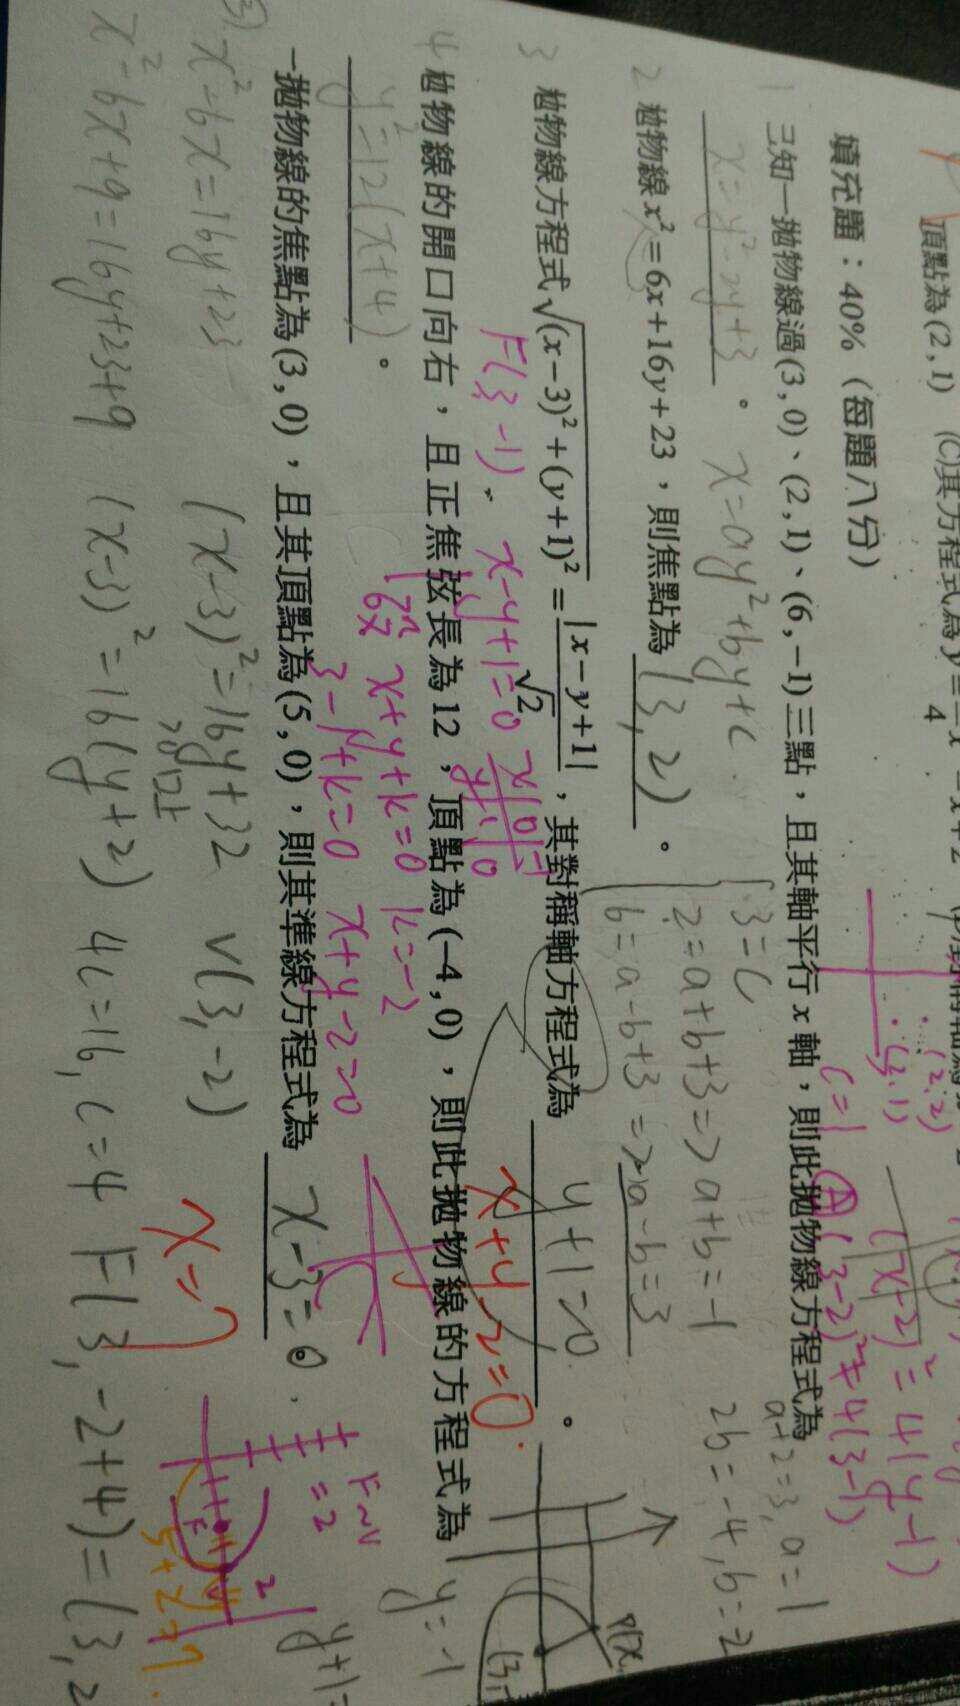 頂點為(2,1) (C)其方程式為y=
填充題：40%（每題八分）
1 三知一拋物線過(3,0)、(2,1)、(6,-1)三點，且其軸平行x軸，則此拋物線方程式為
x=y²-2y+3。
x=ay²+by+c
3=c
2=a+b+3=>a+b=-1
6=a-b+3=>a-b=3
a+2=3, a=1
2b=-4, b=-2
c=1
(2,2)
(2,1)
(x-2)²=4(y-1)
(A) (3-2)²≠4(3-1)
2 拋物線x²=6x+16y+23，則焦點為(3,2)。
3 拋物線方程式√(x-3)²+(y+1)²=|x-y+1|/√2，其對稱軸方程式為 y+1=0。
x+y-2=0.
F(3,-1)
x-y+1=0
x|0|-1
y|1|0
x+y+k=0 k=-2
3-1+k=0 x+y-2=0
4 拋物線的開口向右，且正焦弦長為12，頂點為(-4,0)，則此拋物線的方程式為
y²=12(x+4)。
y=-1
一拋物線的焦點為(3,0)，且其頂點為(5,0)，則其準線方程式為 x-3=0。
x=7
F~V
=2
5+2=7
(3) x²-6x=16y+23
(x-3)²=16y+32 V(3,-2)
x²-6x+9=16y+23+9 (x-3)²=16(y+2) 4c=16, c=4 F(3,-2+4)=(3,2